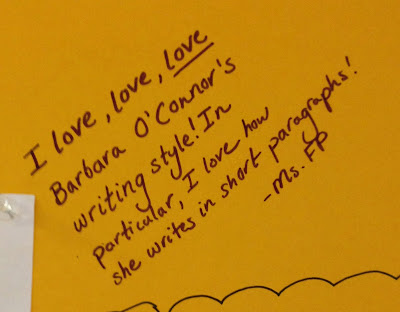 I love, love, love
Barbara O'Connor's
writing style! In
particular, I love how
she writes in short paragraphs!
-Ms. FP